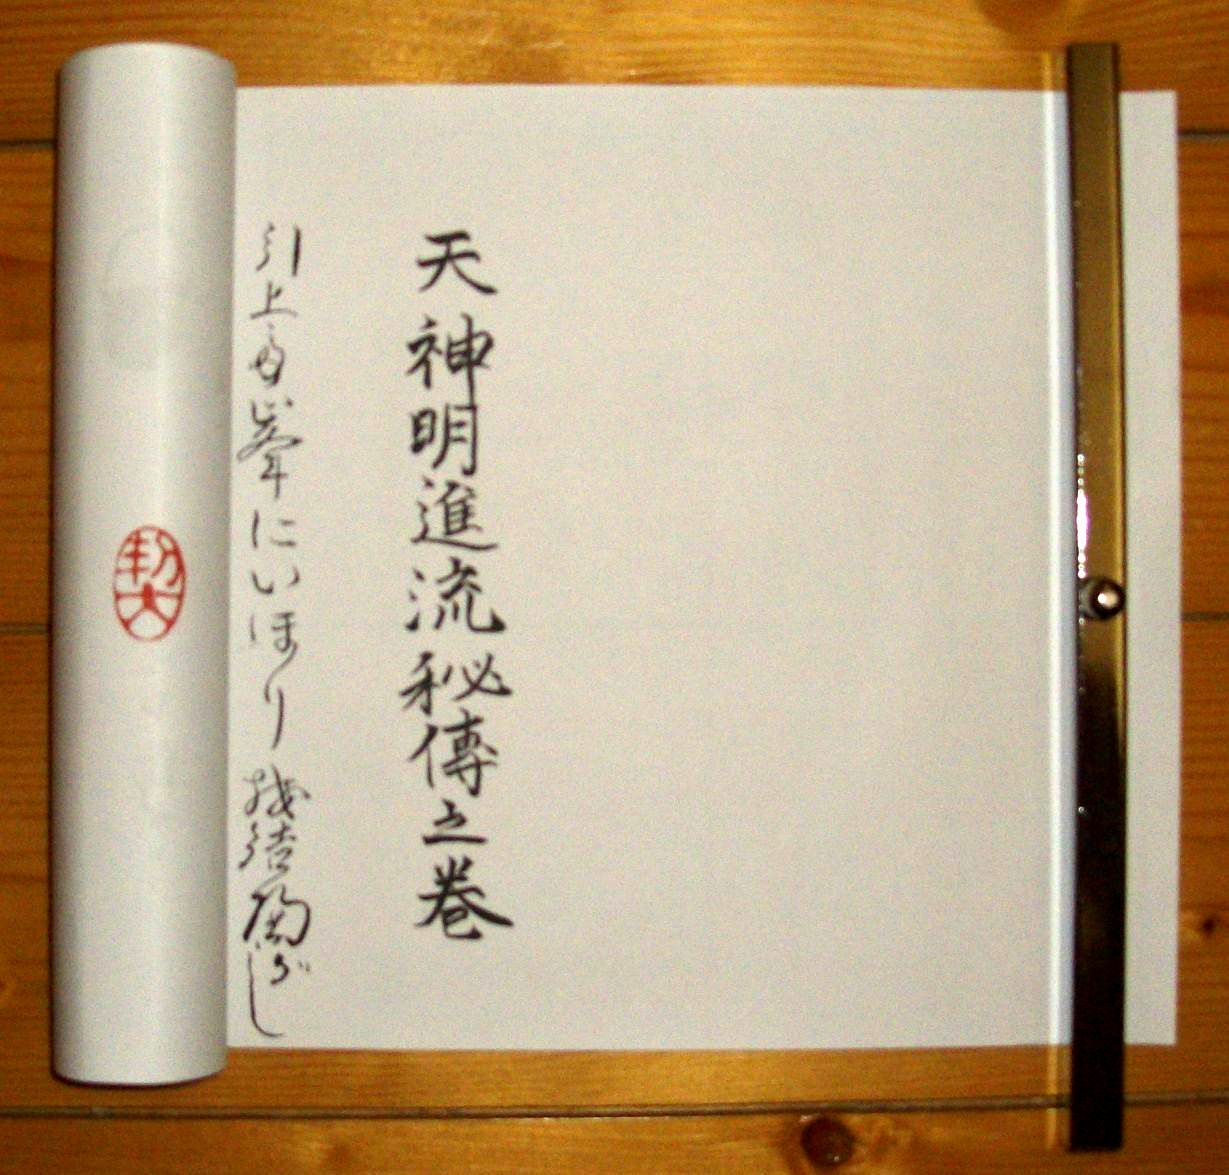 天神明進流秘傳之巻
引上る峯にいほり 結 し
契